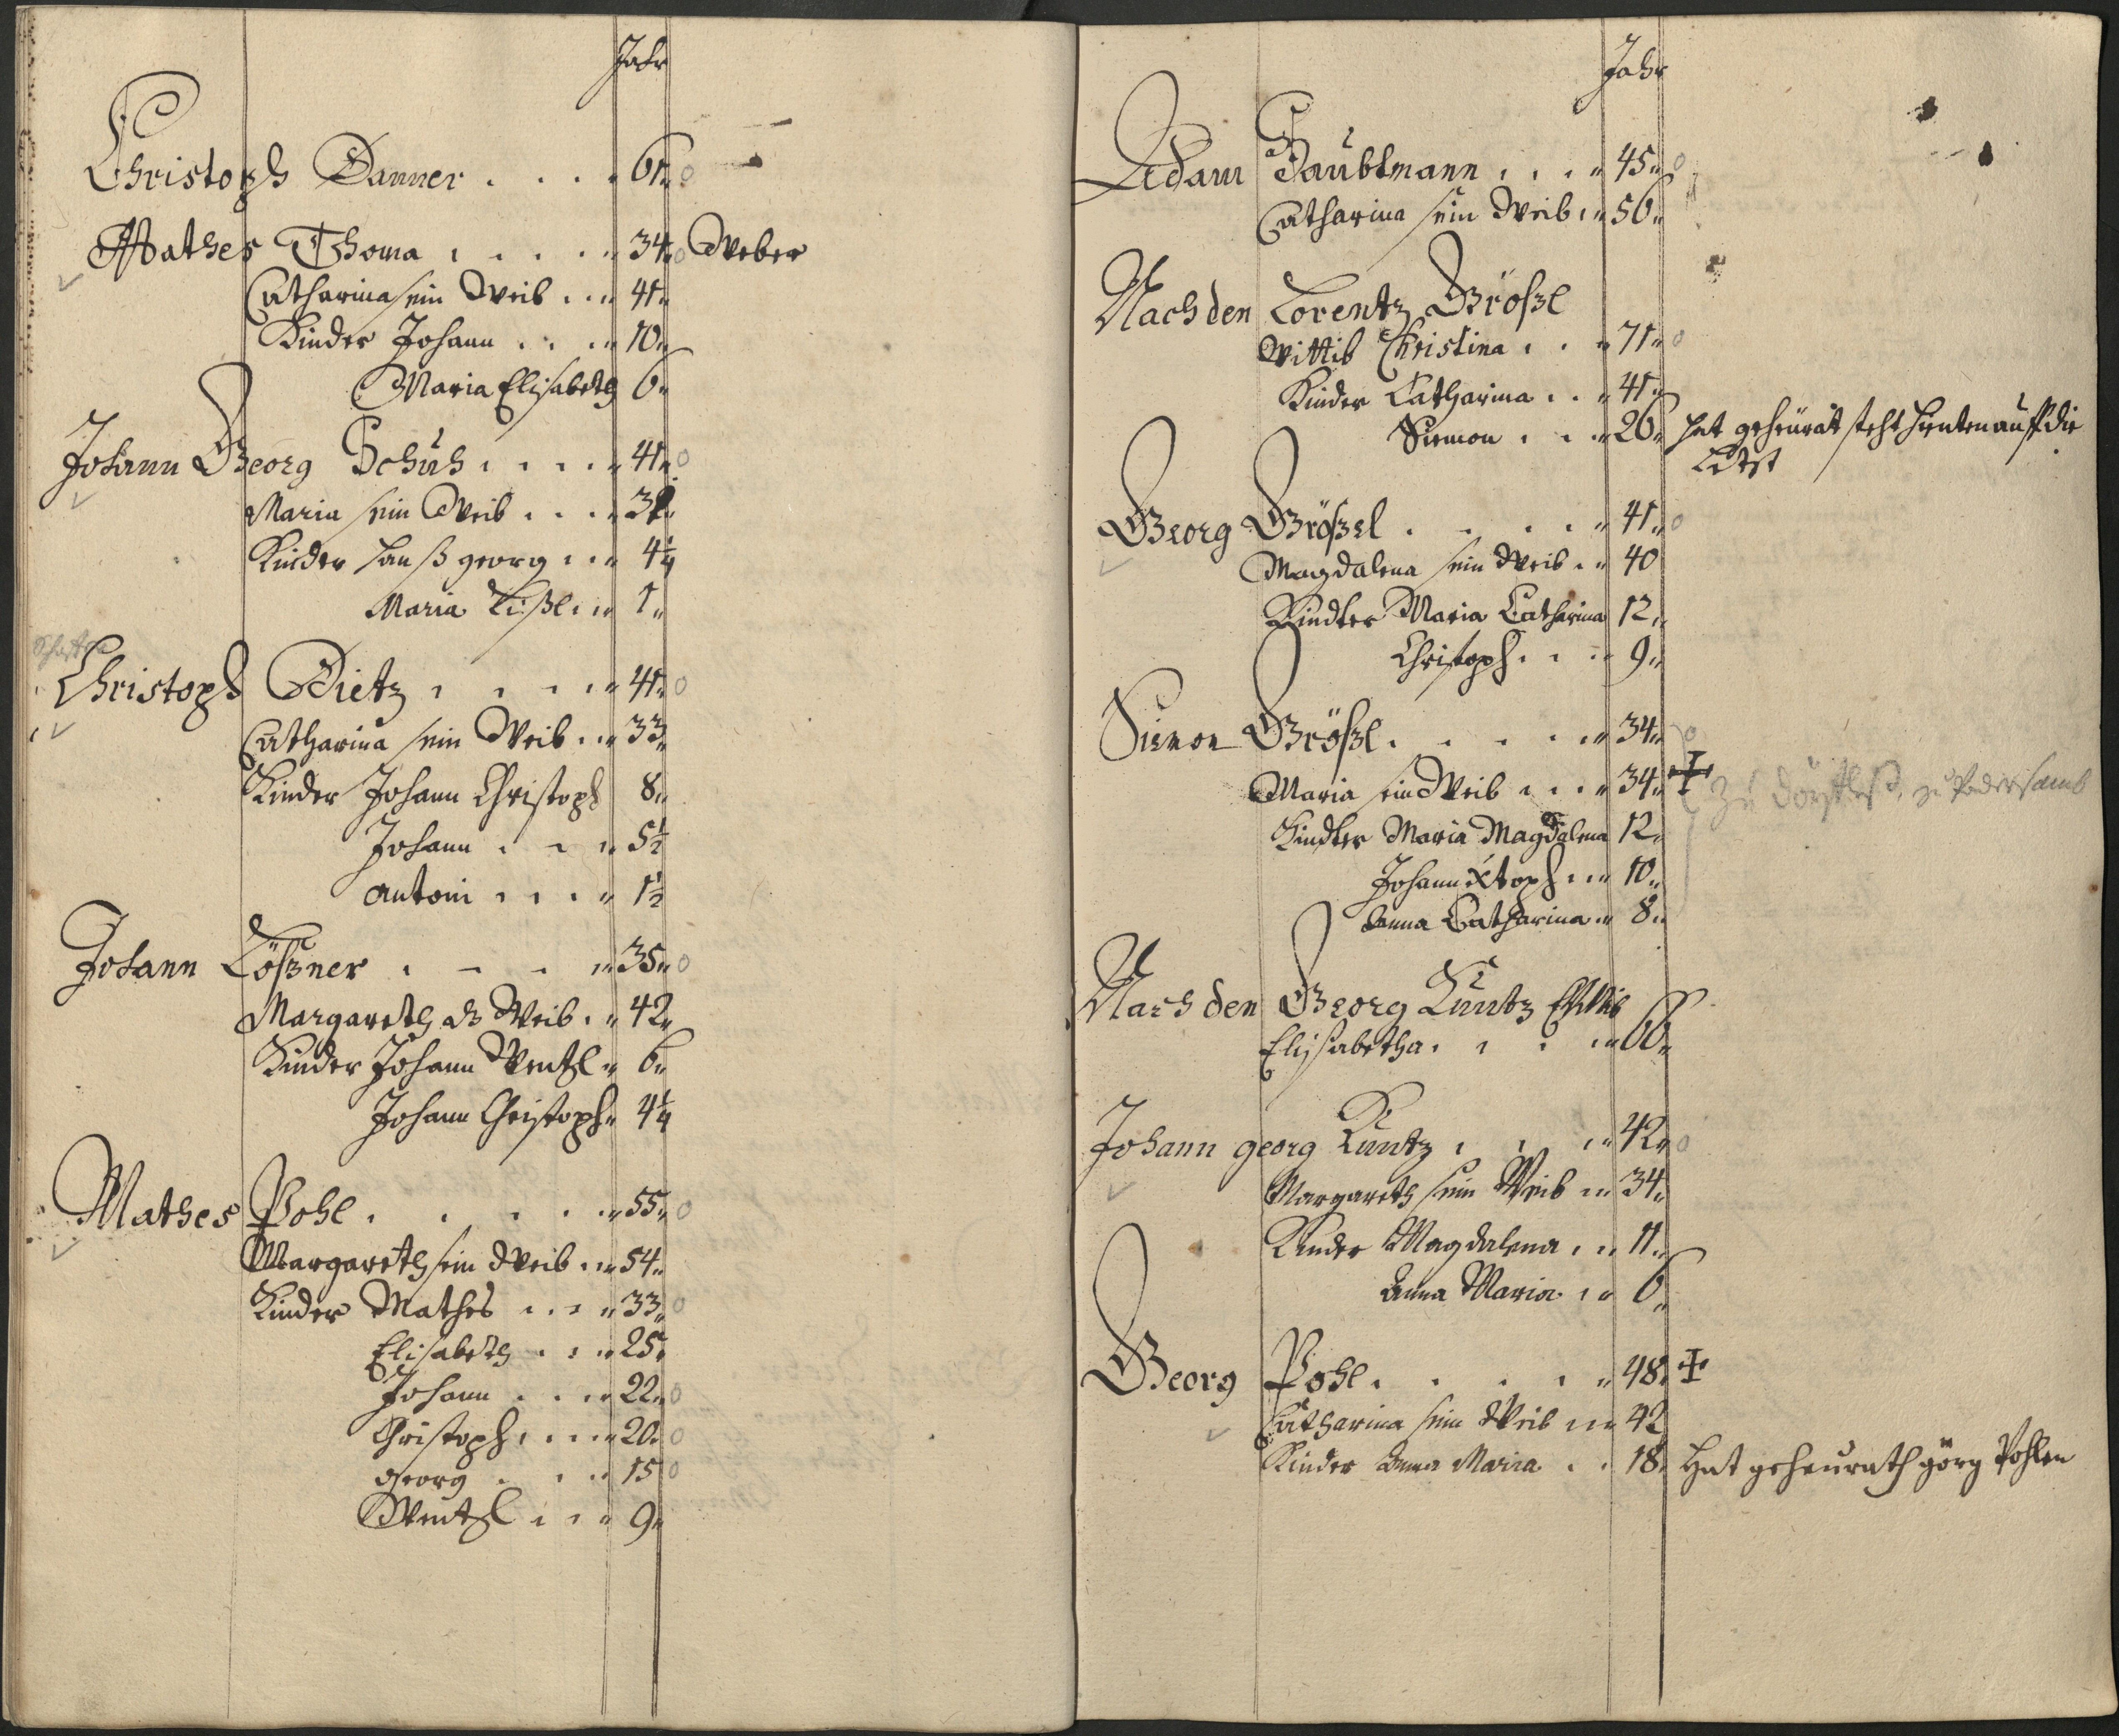 Jahr
Christoph Danner . . . . 61
Mathes Thoma . . . . 34 Weber
Catharina sein Weib . . 41
Kinder Johann . . . 10
Maria Elisabeth 6
Johann Georg Schuh . . . . 41
Maria sein Weib . . . 3
Kinder Hanß georg . . 4¼
Maria Lißl . . 1
Christoph Dietz . . . . 41
Catharina sein Weib . . 33
Kinder Johann Christoph 8
Johann . . . 5½
Antoni . . . . 1½
Johann Lößner . . . . 35
Margareth als Weib . . 42
Kinder Johann Wentzl 6
Johann Christoph 4¼
Mathes Pohl . . . . . 55
Margareth sein Weib . . 54
Kinder Mathes . . . 33
Elisabeth . . . 25
Johann . . . 22
Christoph . . . . 20
Georg . . . 15
Wentzl . . . 9
Jahr
Adam Taubtmann . . . . 45
Catharina sein Weib . . 56
Nach den Lorentz Größl
Wittib Christina . . . 71
Kinder Catharina . . . 41
Siemon . . . 26 hat geheurat steht hienten auff die
Letzt
Georg Größel . . . . . 41
Magdalena sein Weib . . 40
Kindter Maria Catharina 12
Christoph . . . 9
Siemon Größl . . . . . 34
Maria sein Weib . . . 34 zu zu Podersamb
Kindter Maria Magdalena 12
Johann Xtoph . . . 10
Anna Catharina . . 8
Nach den Georg Kuntz
Elisabetha . . . . 66
Johann georg Kuntz . . . 42
Margareth sein Weib . . 34
Kinder Magdalena . . . 11
Anna Maria . . 6
Georg Pohl . . . . . 48
Catharina sein Weib . . 42
Kinder Anna Maria . . 18 Hat geheurath görg Pohlen